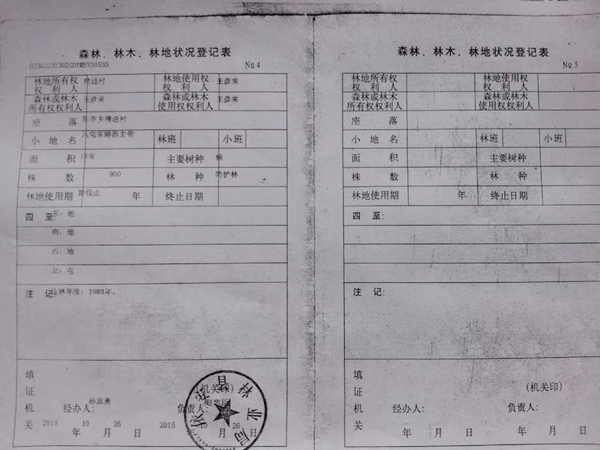 森林、林木、林地状况登记表
№4
林地所有权权利人 精进村 林地使用权权利人 王彦宋
森林或林木所有权权利人 王彦宋 森林或林木使用权权利人 王彦宋
座落
小地名 林班 小班
面积 主要树种 杨
株数 900 林种 防护林
林地使用期 年 终止日期
四至 东：地
南：地
西：地
北：屯
注记 造林年度：1983年。
填证机关
(机关印)
经办人： 孙志勇 负责人：
2015 年 10 月 26 日 2015 年 10 月 26 日
林业局
森林、林木、林地状况登记表
№5
林地所有权权利人 林地使用权权利人
森林或林木所有权权利人 森林或林木使用权权利人
座落
小地名 林班 小班
面积 主要树种
株数 林种
林地使用期 年 终止日期
四至
注记
填证机关
(机关印)
经办人： 负责人：
年 月 日 年 月 日